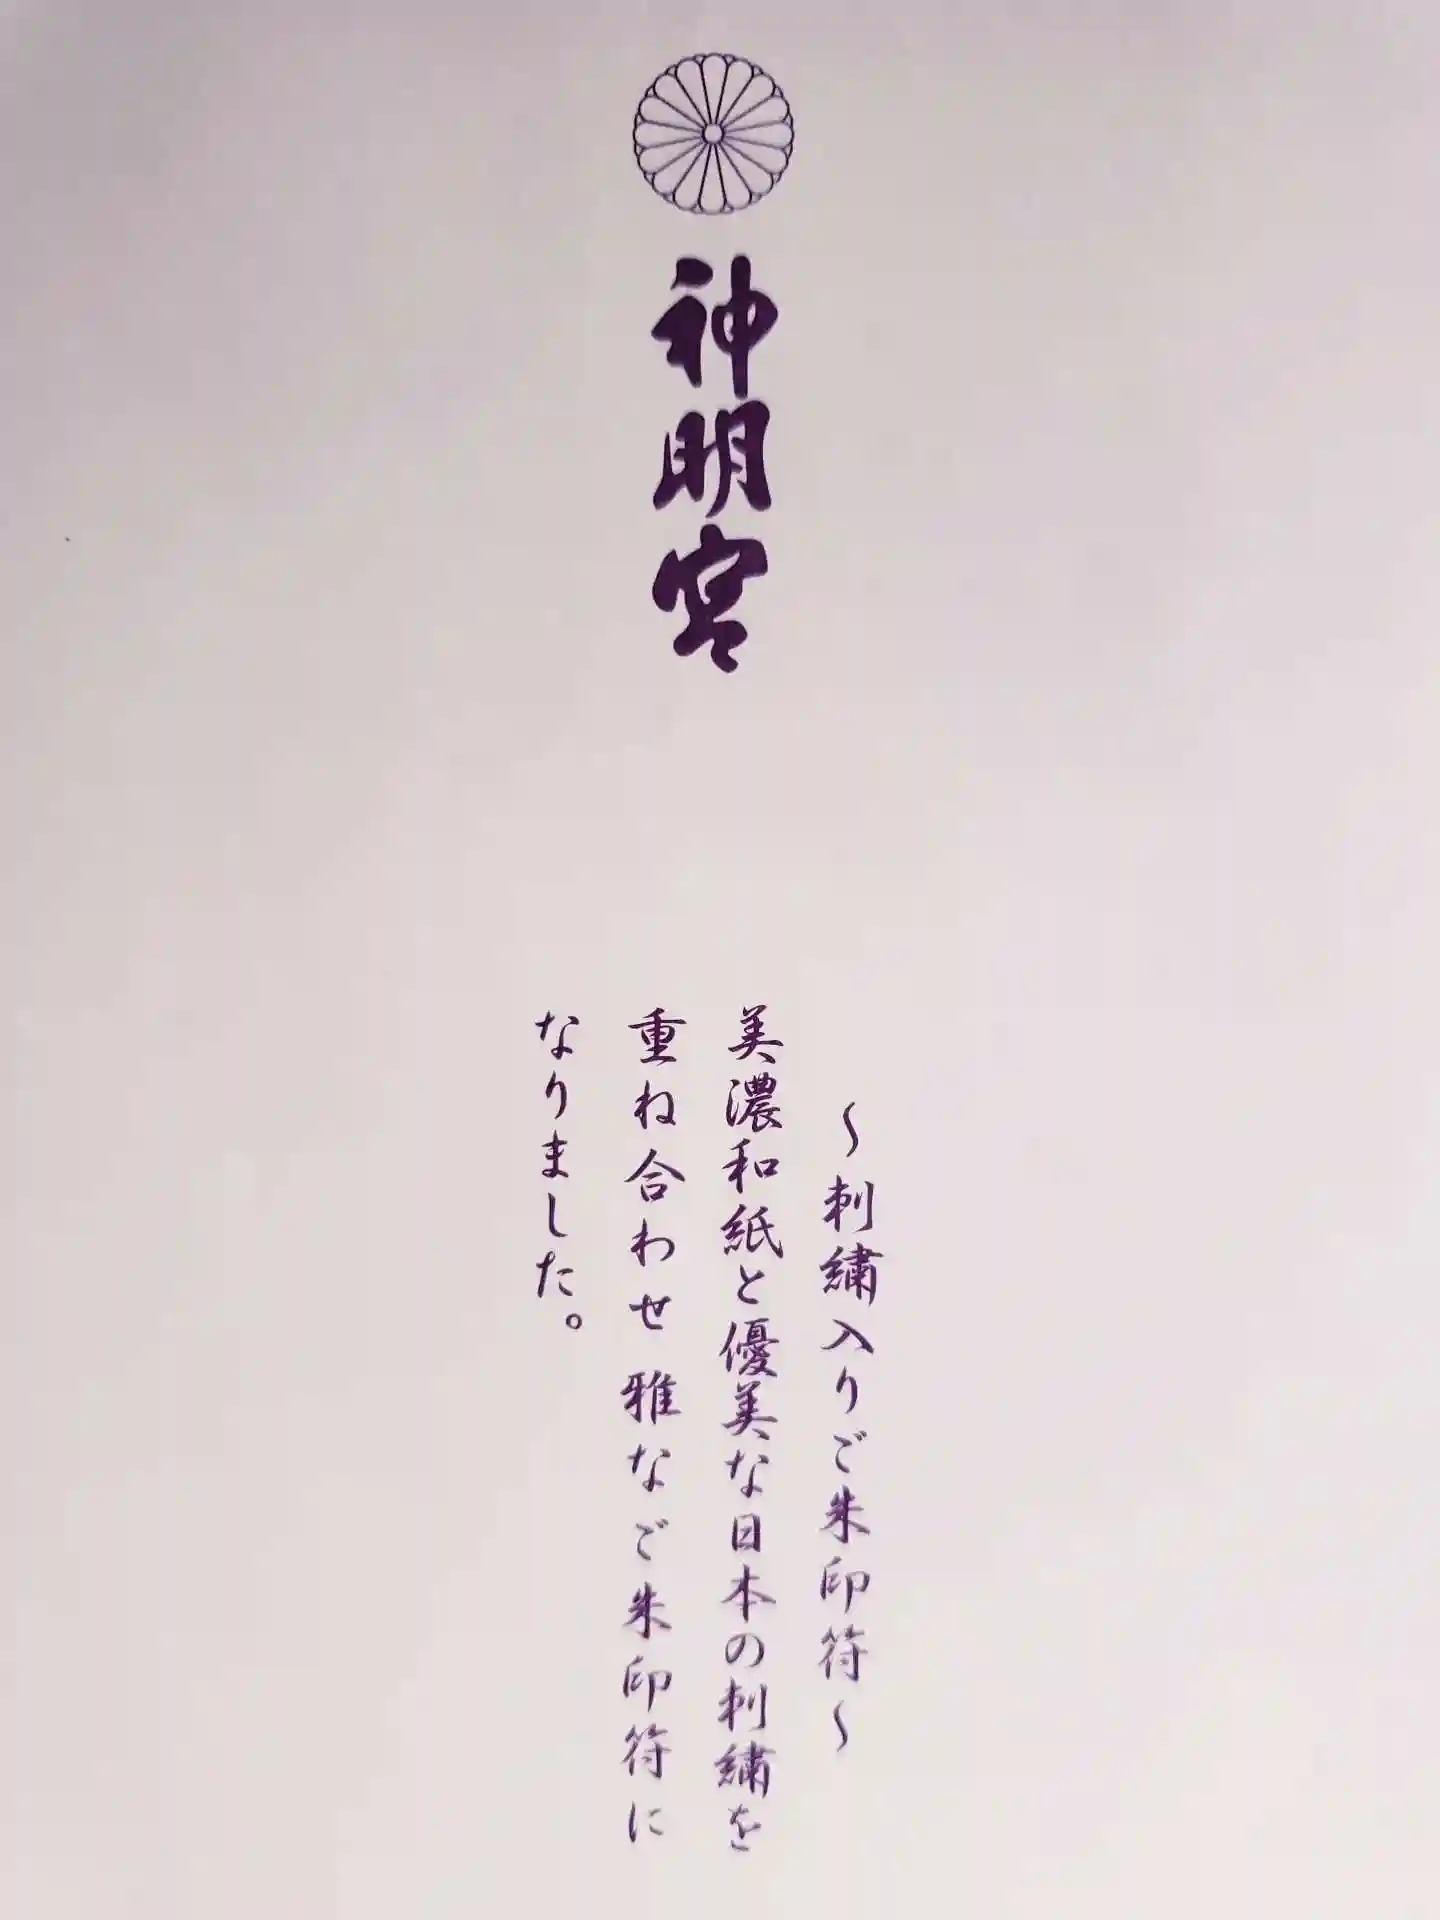 神明宮
～刺繍入りご朱印符～
美濃和紙と優美な日本の刺繍を
重ね合わせ 雅なご朱印符に
なりました。